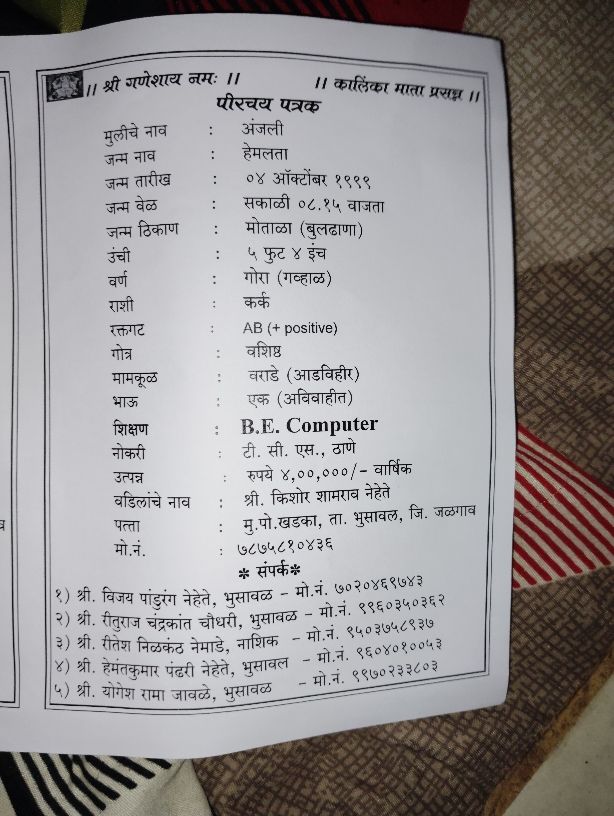 ।। श्री गणेशाय नमः ।। ।। कालिंका माता प्रसन्न ।।
पीरचय पत्रक
मुलीचे नाव : अंजली
जन्म नाव : हेमलता
जन्म तारीख : ०४ ऑक्टोंबर १९९९
जन्म वेळ : सकाळी ०८.१५ वाजता
जन्म ठिकाण : मोताळा (बुलढाणा)
उंची : ५ फुट ४ इंच
वर्ण : गोरा (गव्हाळ)
राशी : कर्क
रक्तगट : AB (+ positive)
गोत्र : वशिष्ठ
मामकूळ : वराडे (आडविहीर)
भाऊ : एक (अविवाहीत)
शिक्षण : B.E. Computer
नोकरी : टी. सी. एस., ठाणे
उत्पन्न : रुपये ४,००,०००/- वार्षिक
वडिलांचे नाव : श्री. किशोर शामराव नेहेते
पत्ता : मु.पो.खडका, ता. भुसावल, जि. जळगाव
मो.नं. : ७८७५८१०४३६
* संपर्क*
१) श्री. विजय पांडुरंग नेहेते, भुसावळ - मो.नं. ७०२०४६९७४३
२) श्री. रीतुराज चंद्रकांत चौधरी, भुसावळ - मो.नं. ९९६०३५०३६२
३) श्री. रीतेश निळकंठ नेमाडे, नाशिक - मो.नं. ९५०३७५८९३७
४) श्री. हेमंतकुमार पंढरी नेहेते, भुसावल - मो.नं. ९६०४०१००५३
५) श्री. योगेश रामा जावळे, भुसावळ - मो.नं. ९९७०२३३८०३